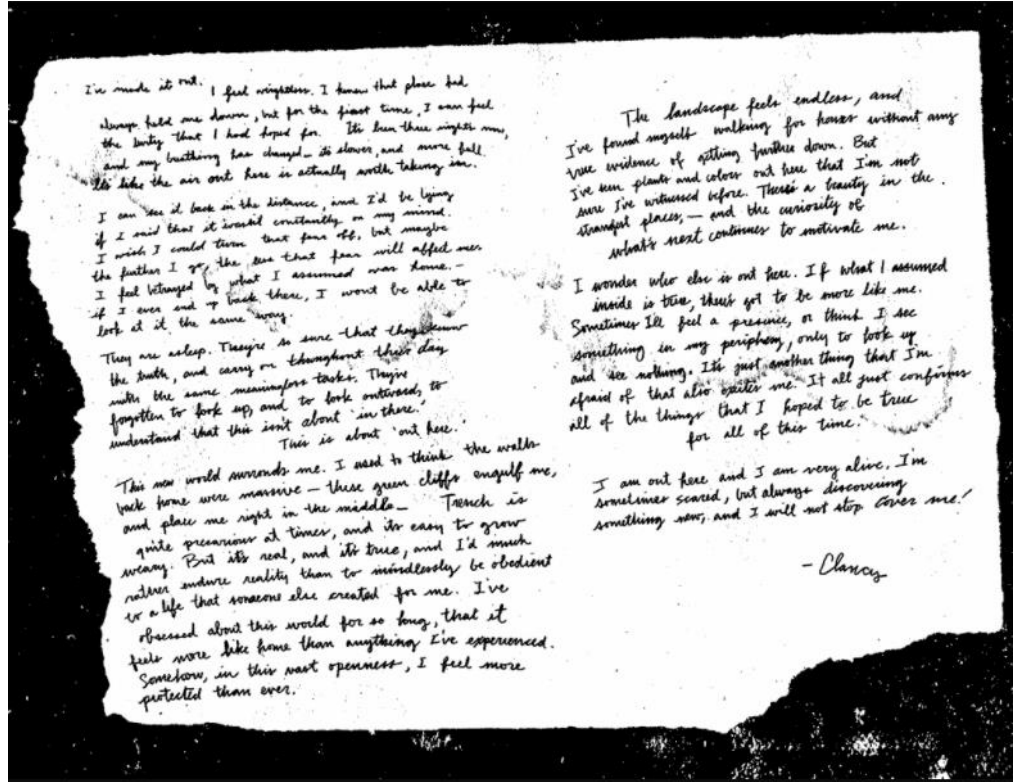 I've made it out. I feel weightless. I know that place had
always held me down, but for the first time, I can feel
the lenity that I had hoped for. Its been three nights now,
and my breathing has changed – its slower, and more full.
Its like the air out here is actually worth taking in.
I can see it back in the distance, and I'd be lying
if I said that it wasn't constantly on my mind.
I wish I could turn that fear off, but maybe
the further I go, the less that fear will affect me.
I feel betrayed by what I assumed was home. –
if I ever end up back there, I won't be able to
look at it the same way.
They are asleep. They're so sure that they know
the truth, and carry on throughout their day
with the same meaningless tasks. They've
forgotten to look up, and to look outward, to
understand that this isn't about 'in there.'
This is about 'out here.'
This new world surronds me. I used to think the walls
back home were massive – these green cliffs engulf me,
and place me right in the middle – Trench is
quite precarious at times, and its easy to grow
weary. But its real, and its true, and I'd much
rather endure reality than to mindlessly be obedient
to a life that someone else created for me. I've
obsessed about this world for so long, that it
feels more like home than anything I've experienced.
Somehow, in this vast openness, I feel more
protected than ever.
The landscape feels endless, and
I've found myself walking for hours without any
true evidence of getting further down. But
I've seen plants and colors out here that I'm not
sure I've witnessed before. There's a beauty in the
strangest places, – and the curiosity of
what's next continues to motivate me.
I wonder who else is out here. If what I assumed
inside is true, there's got to be more like me.
Sometimes Ill feel a presence, or think I see
something in my periphery, only to look up
and see nothing. Its just another thing that I'm
afraid of that also excites me. It all just confirms
all of the things that I hoped to be true
for all of this time.
I am out here and I am very alive. I'm
sometimes scared, but always discovering
something new, and I will not stop cover me!
– Clancy